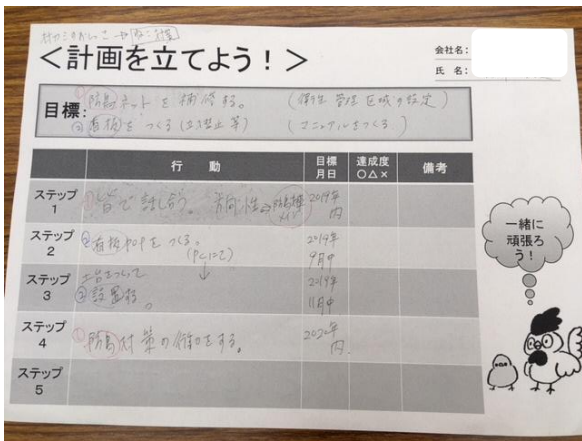 ＜計画を立てよう！＞
会社名:
氏 名:
目標:
①防鳥ネットを補修する。 （衛生管理区域の設定）
②看板をつくる（立入禁止等） （マニュアルをつくる）
行 動
目標
月日
達成度
○△×
備考
ステップ
1
①皆で話し合う。 方向性
2019年
ステップ
2
②看板POPをつくる。
(PCにて)
2019年
9月中
ステップ
3
②設置する。
2019年
11月中
ステップ
4
①防鳥対策の補修をする。
2020年
ステップ
5
一緒に
頑張ろ
う！